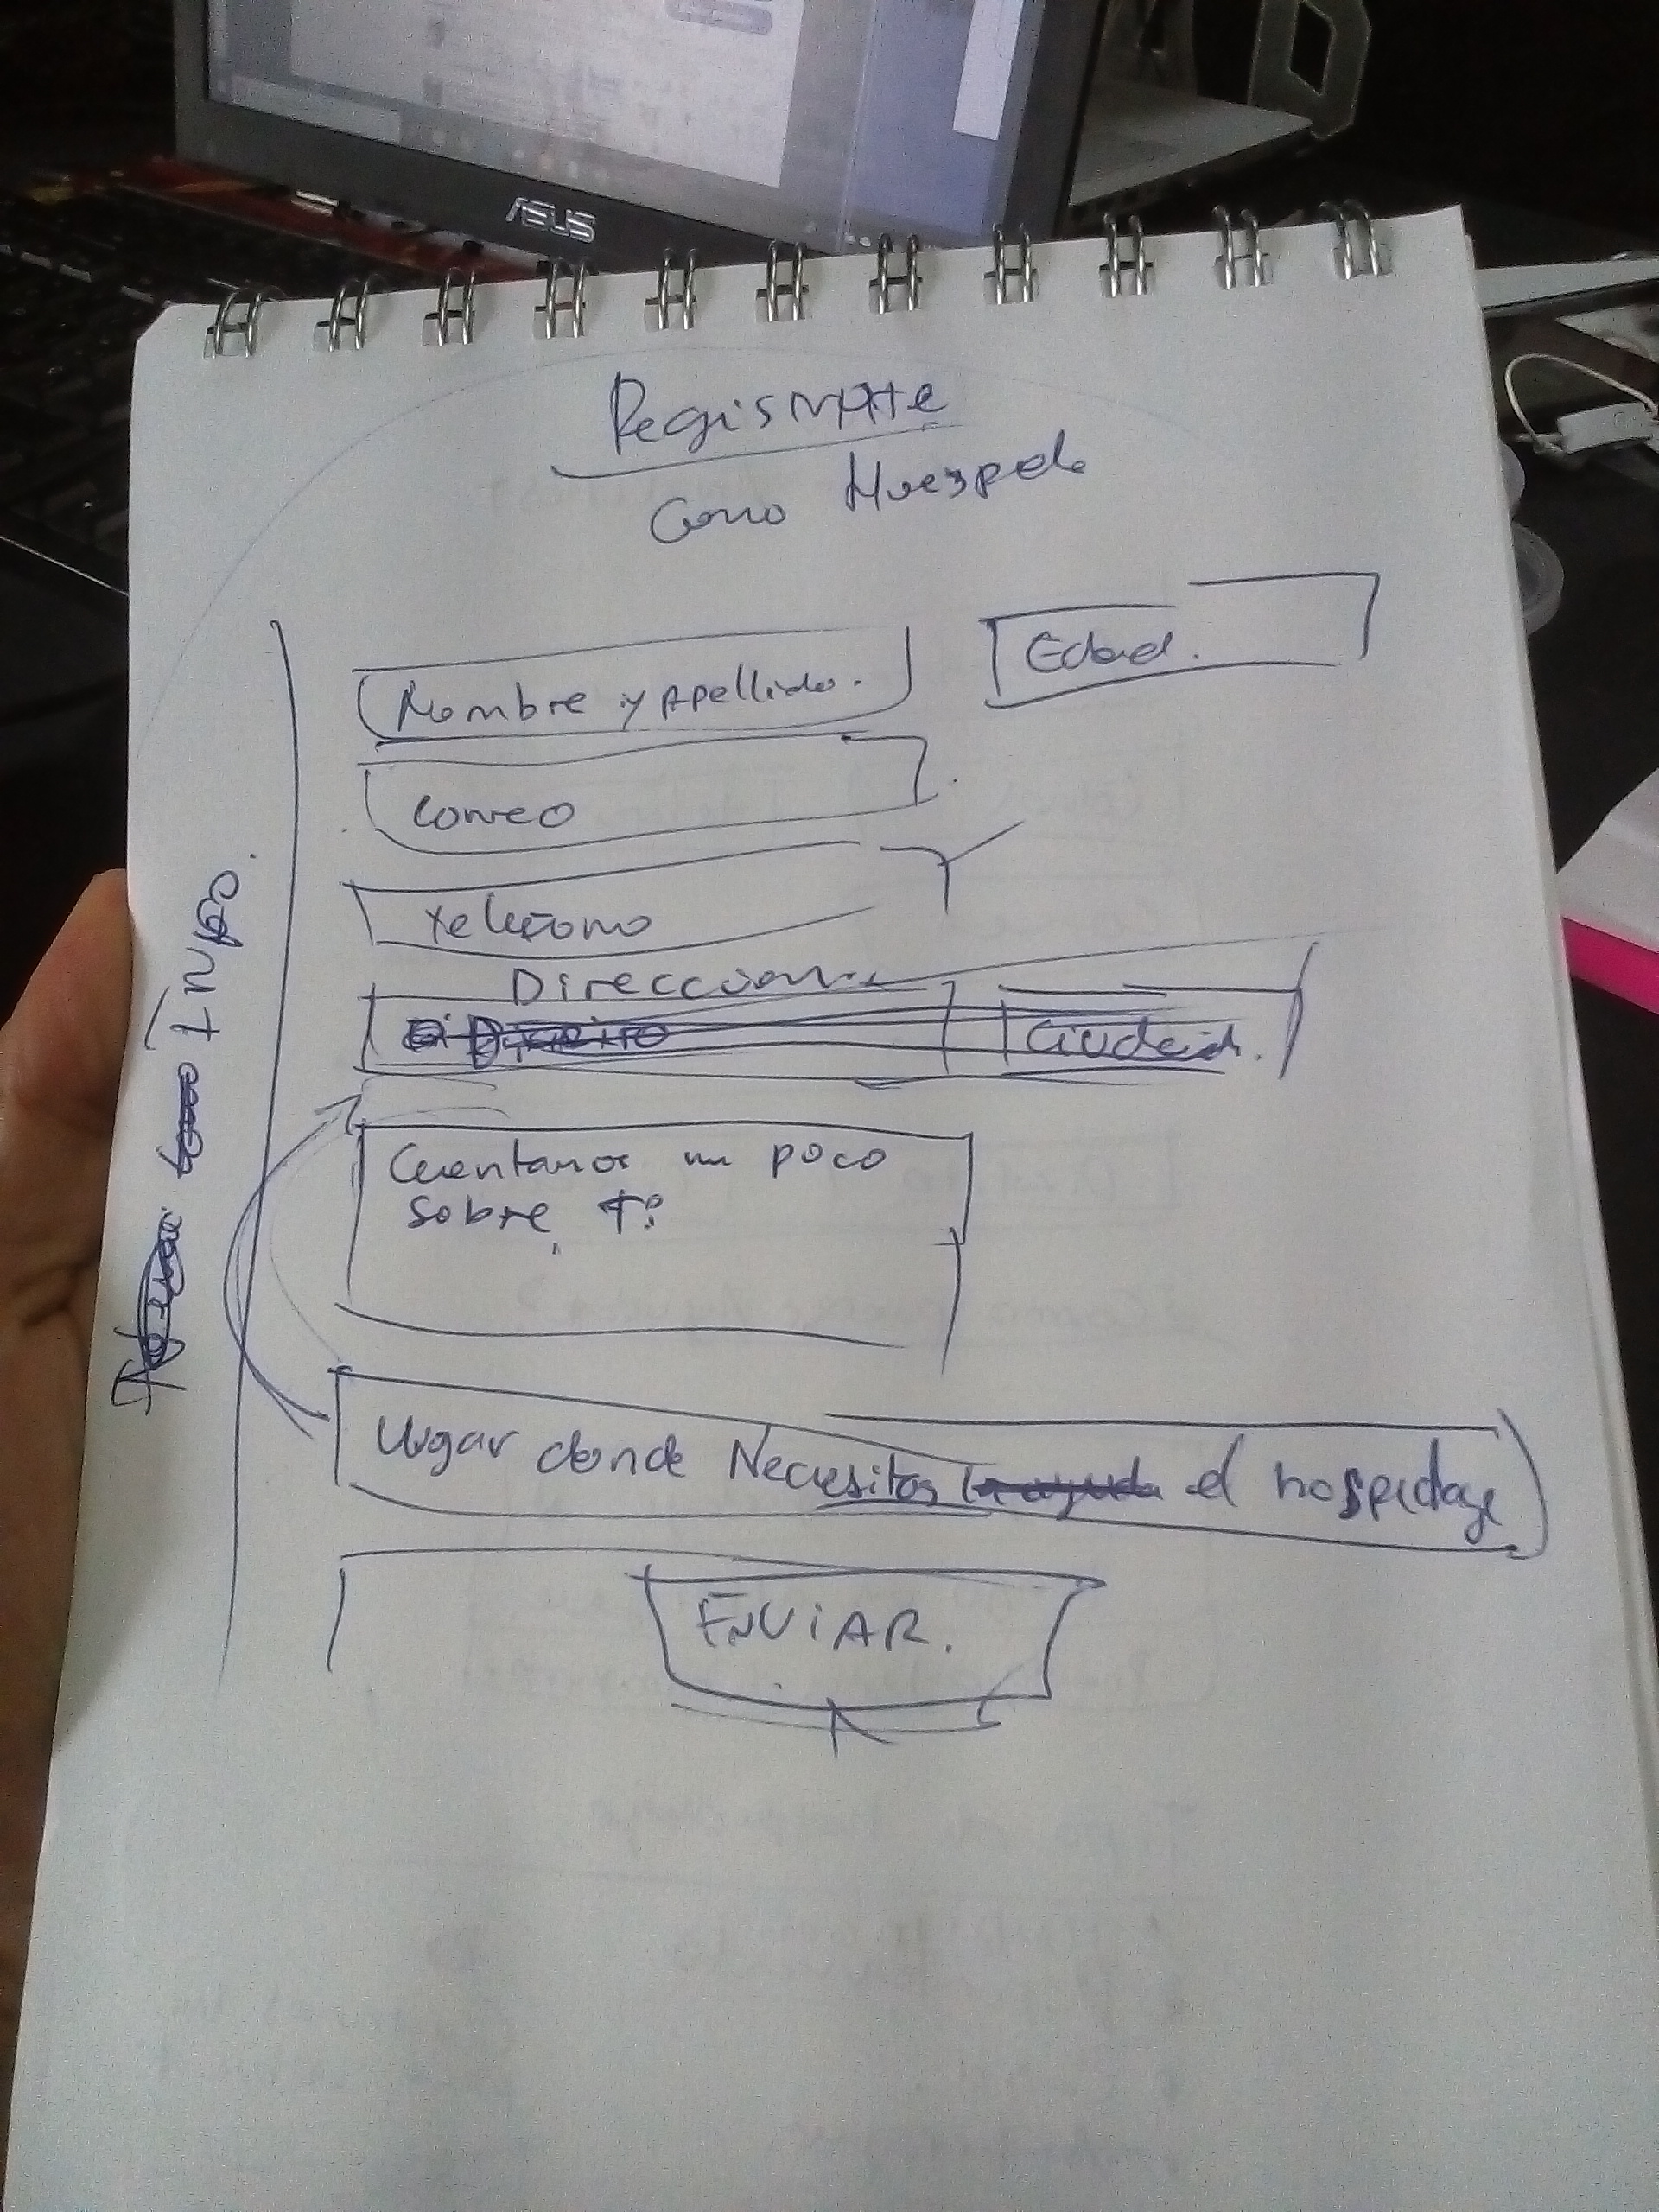 ASUS
Registrate
Como Huesped
Nombre y Apellido.
Edad.
Correo
telefono
Direccion
Distrito
Ciudad.
Cuentanos un poco
sobre ti
Lugar donde Necesitas la ayuda el hospedaje
ENViAR.
INFO.